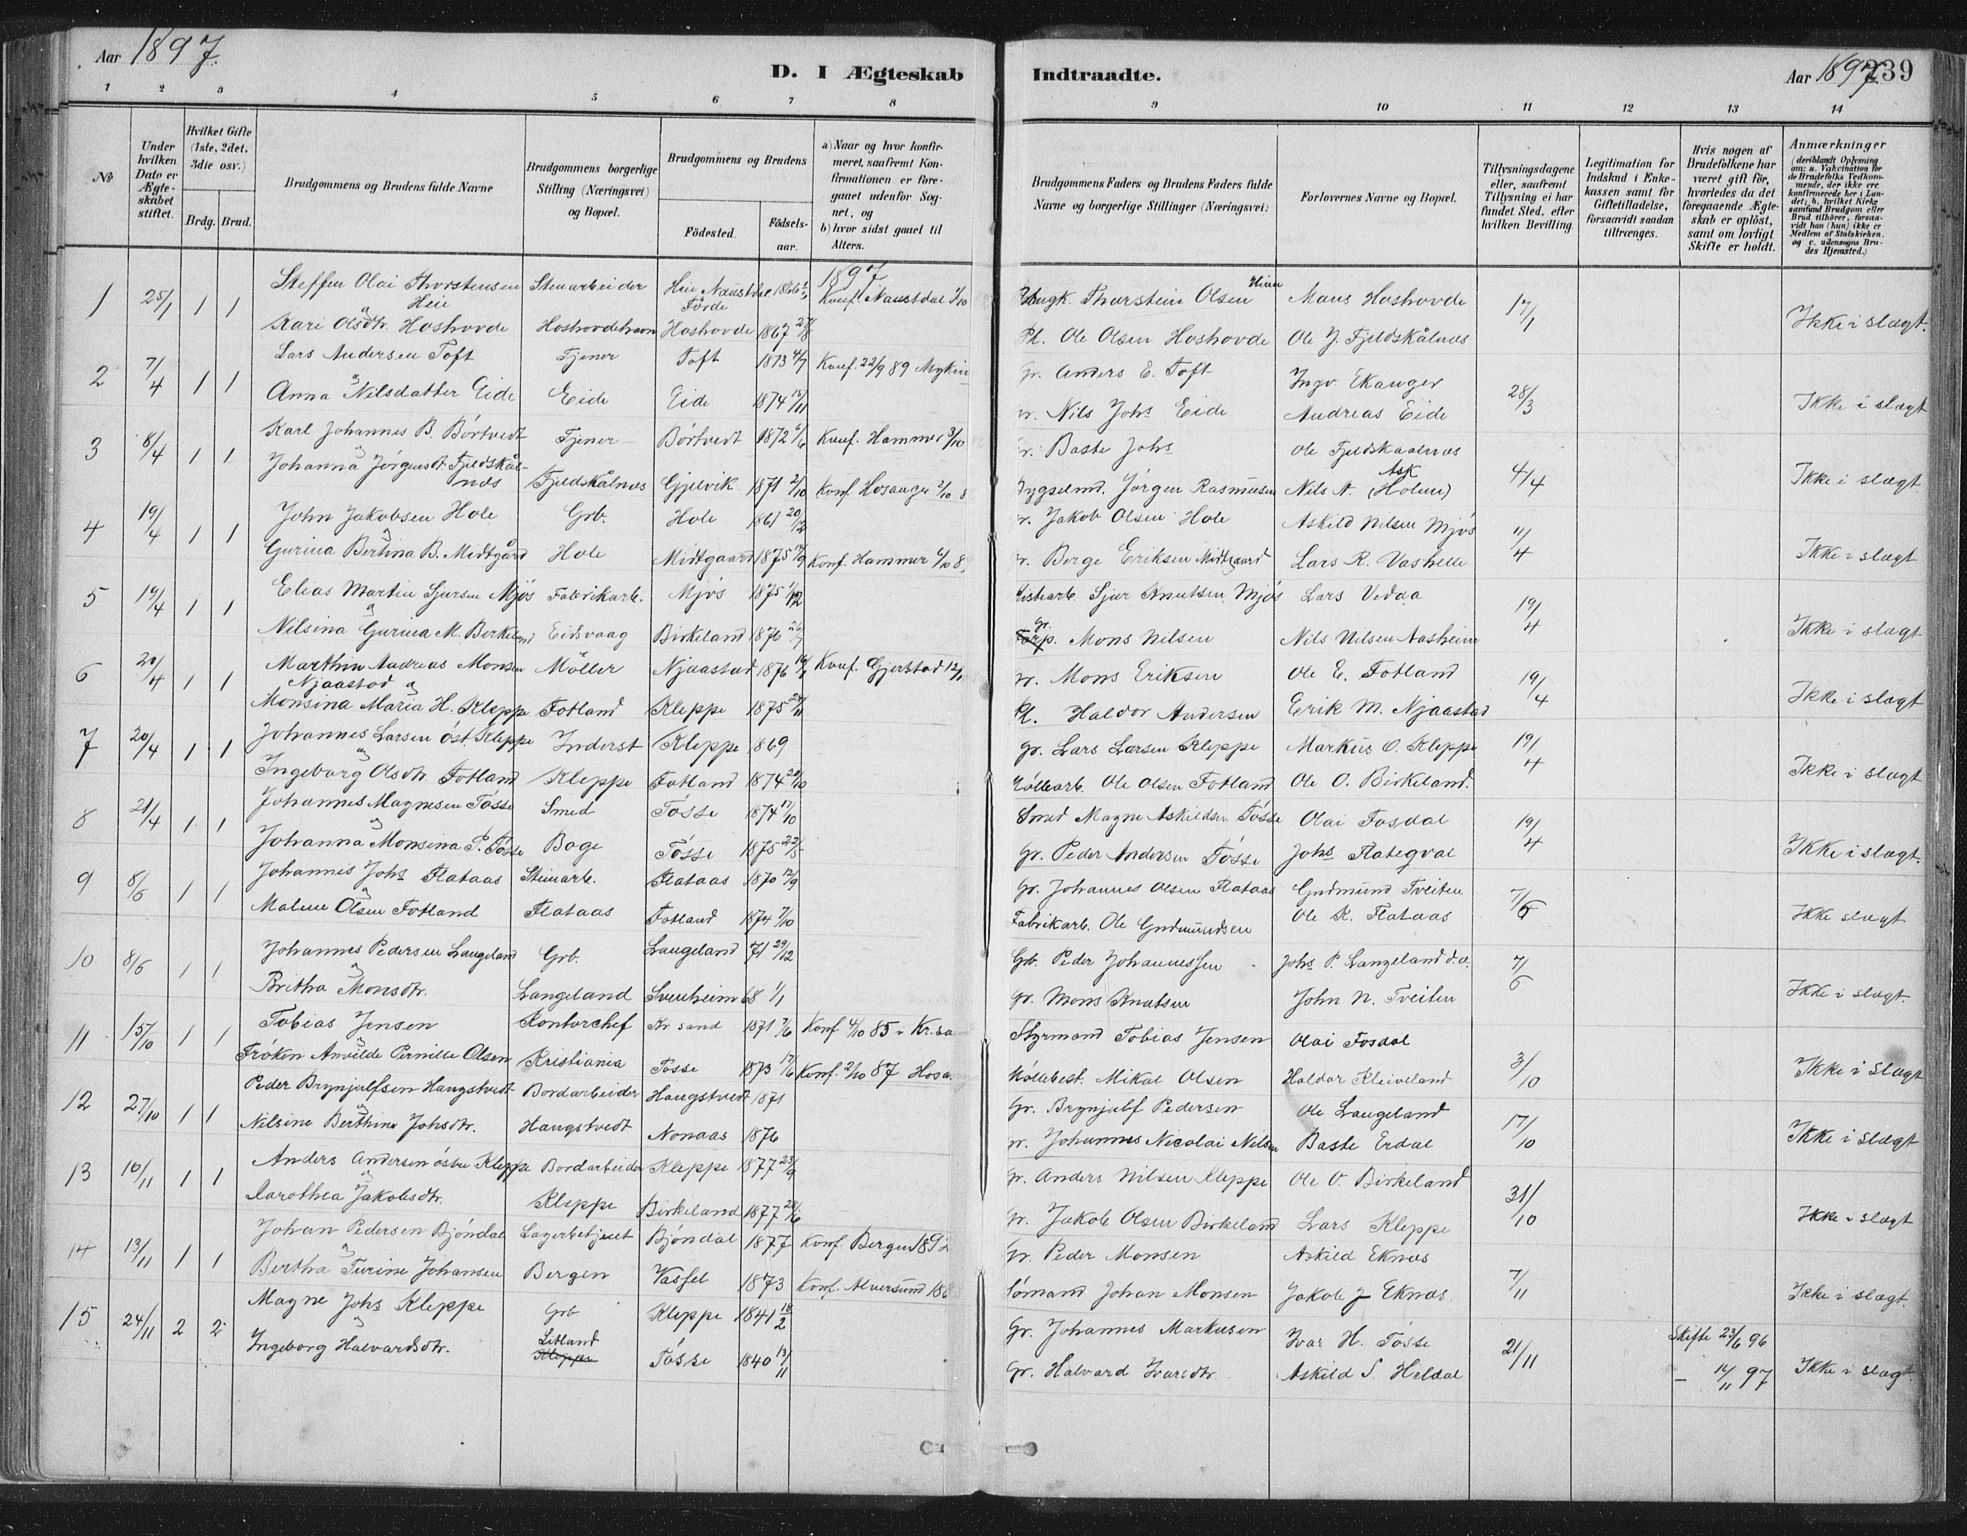 Aar 1897.
D. I Ægteskab Indtraadte.
Aar 1897 239
1 2 3 4 5 6 7 8 9 10 11 12 13 14
No
Under hvilken Dato er Ægteskabet stiftet.
Hvilket Gifte (1ste, 2det, 3die osv.)
Brdg. Brud.
Brudgommens og Brudens fulde Navne
Brudgommens borgerlige Stilling (Næringsvei) og Bopæl.
Brudgommens og Brudens
Fødested. Fødselsaar.
a) Naar og hvor konfirmeret, saafremt Konfirmationen er foregaaet udenfor Sognet, og
b) hvor sidst gaaet til Alters.
Brudgommens Faders og Brudens Faders fulde Navne og borgerlige Stillinger (Næringsvei)
Forlovernes Navne og Bopæl.
Tillysningsdagene eller, saafremt Tillysning ei har fundet Sted, efter hvilken Bevilling.
Legitimation for Indskud i Enkekassen samt for Giftetilladelse, forsaavidt saadan tiltrænges.
Hvis nogen af Brudefolkene har været gift før, hvorledes da det foregaaende Ægteskab er opløst, samt om lovligt Skifte er holdt.
Anmærkninger
1 25/1 1 1 Steffen Olai Thorstensen Heie Stenarbeider Førde 1866 1897 Konf. Naustdal Thorstein Olsen Mons Hoshovde 17/1 Ikke i slægt.
Kari Olsdtr. Hoshovde Hoshovde 1867 27/8 Pl. Ole Olsen Hoshovde Ole J. Fjeldskålnæs
2 7/4 1 1 Lars Andersen Toft Tjener Toft 1873 4/7 Konf. 22/9 89 Gr. Anders E. Toft Ingv. Ekanger 28/3 Ikke i slægt
Anna Nilsdatter Eide Eide Eide 1874 Nils Johs Eide Andreas Eide
3 8/4 1 1 Karl Johannes B. Børtvedt Tjener Børtvedt 1872 Konf. Hammer 3/10 Baste Johs Ole Fjeldskaalnæs 4/4 Ikke i slægt
Johanna Jørgensdt. Fjeldskålnæs Fjeldskålnæs Gjelvik 1871 2/10 Konf. Hosanger 2/10 Jørgen Rasmussen Nils A. Ask (Holmen)
4 19/4 1 1 John Jakobsen Hole Grb. Hole 1861 20/12 Jakob Olsen Hole Askild Nilsen Mjøs 11/4 Ikke i slægt
Gurina Bertina B. Midtgård Hole Midtgaard 1875 Konf. Hammer Berge Eriksen Midtgaard Lars R. Vashelle
5 19/4 1 1 Elias Martin Sjursen Mjøs Fabrikarb. Mjøs 1875 Sjur Knutsen Mjøs Lars Vedaa 19/4 Ikke i slægt
Nilsina Gurina M. Berkeland Eidsvaag Birkeland 1876 Mons Nilsen Nils Nilsen Aasheim
6 20/4 1 1 Marthin Andreas Monsen Njaastad Møller Njaastad 1876 Konf. Gjerstad Mons Eriksen Ole E. Fotland 19/4 Ikke i slægt
Monsina Maria H. Kleppe Fotland Kleppe 1875 Pl. Haldor Andersen Erik M. Njaastad
7 20/4 1 1 Johannes Larsen øst. Kleppe Inderst Kleppe 1869 Gr. Lars Larsen Kleppe Markus O. Kleppe 19/4 Ikke i slægt
Ingeborg Olsdtr. Fotland Kleppe Fotland 1874 20/10 Ole Olsen Fotland Ole O. Birkeland.
8 21/4 1 1 Johannes Magnesen Tøsse Smed Tøsse 1874 17/10 Smed Magne Askildsen Tøsse Olai Fosdal 19/4 Ikke i slægt.
Johanna Monsina P. Tøsse Boge Tøsse 1875 22/5 Gr. Peder Andersen Tøsse Johs Flategval
9 8/6 1 1 Johannes Johs Flataas Stenarb. Flataas 1870 12/9 Gr. Johannes Olsen Flataas Gudmund Tveiten 7/6 Ikke slægt
Malene Olsen Fotland Flataas Fotland 1874 7/10 Fabrikarb. Ole Gudmundsen Ole K. Flataas
10 8/6 1 1 Johannes Pedersen Langeland Grb. Langeland 71 29/12 Grb Peder Johannessen Johs P. Langeland d.æ. 7/6 Ikke i slægt
Britha Monsdtr. Langeland Svenheim 68 1/1 Gr. Mons Knutsen John N. Tveiten
11 15/10 1 1 Tobias Jensen Kontorchef Kr sand 1871 7/6 Konf 4/10 85 i Kr.sa Styrmand Tobias Jensen Olai Fosdal 3/10 Ikke i slægt
Frøken Anvilde Pernille Olsen Kristiania Tøsse 1873 17/6 Konf. 2/10 87 Hosa. Møllebest. Mikal Olsen Haldor Kleiveland
12 27/10 1 1 Peder Brynjulfsen Haugstvedt Bordarbeider Haugstvedt 1871 Gr. Brynjulf Pedersen Ole Langeland 17/10 Ikke i slægt
Nilsine Berthine Johsdtr. Haugstvedt Nonaas 1876 Johannes Nicolai Nilsen Baste Erdal
13 10/11 1 1 Anders Andersen østre Kleppe Bordarbeider Kleppe 1877 23/9 Gr. Anders Nilsen Kleppe Ole O. Birkeland 31/10 Ikke i slægt
Dorothea Jakobsdtr. Kleppe Birkeland 1877 Gr. Jakob Olsen Birkeland Lars Kleppe
14 13/11 1 1 Johan Pedersen Bjøndal Lagerbetjent Bjøndal 1877 Konf. Bergen 189 Gr. Peder Monsen Askild Eknæs 7/11 Ikke i slægt.
Bertha Turine Johansen Bergen Vasfet 1873 Konf. Alversund 18 Sømand Johan Monsen Jakob J Eknæs
15 24/11 2 2 Magne Johs Kleppe Grb Kleppe 1841 18/2 Gr. Johannes Markusen Ivar H. Tøsse 21/11 Skifte 23/6 96
Ingeborg Halvardsdtr. Letland Kleppe Tøsse 1840 13/11 Gr. Halvard Ivarsdtr. Askild S. Heldal - 12/11 97 Ikke i slægt